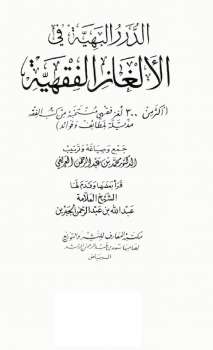 الدرر البهية في
الألغاز الفقهية
(أكثر من ٣٠٠ لغز فقهي منتخبة من كتب الفقه
مذيلة بلطائف وفوائد)
جمع وصياغة وترتيب
الدكتور محمد بن عبد الرحمن العريفي
قرأ بعضها وقدم لها
الشيخ العلامة
عبد الله بن عبد الرحمن الجبرين
مكتبة المعارف للنشر والتوزيع
لصاحبها سعد بن عبد الرحمن الراشد
الرياض